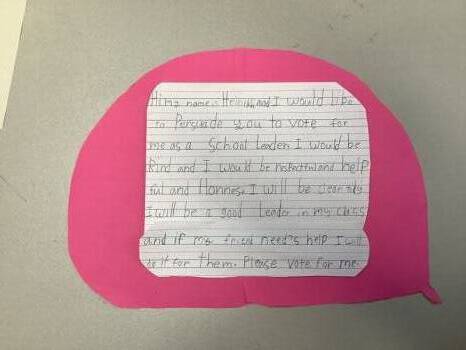 Hi my name is and I would like
to Persuade you to vote for
me as a School Leader I would be
Kind and I would be respectful and help
ful and Honnest I will be
I will be a good Leader in my class
and if my friend need's help I will
do it for them. Please vote for me.